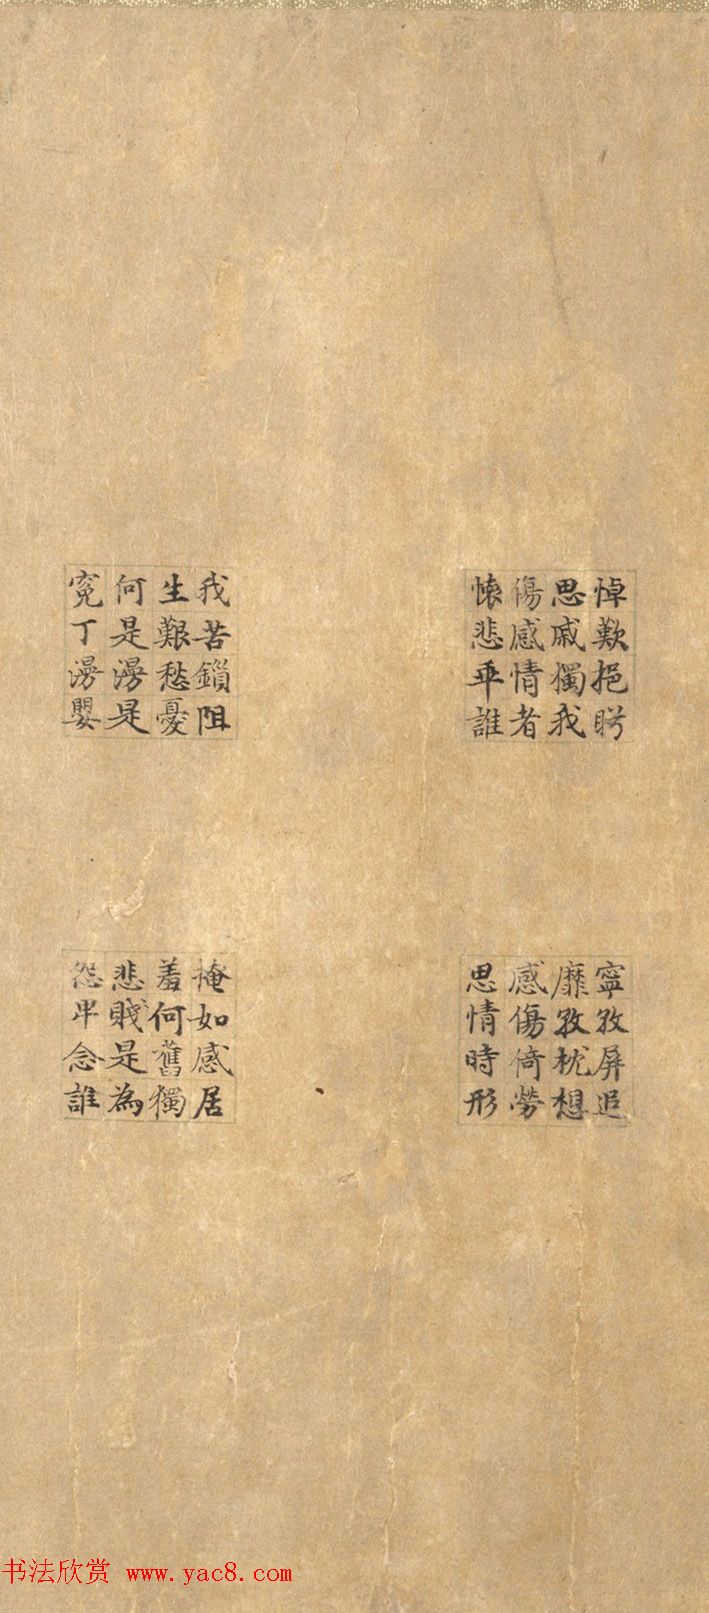 悼歎挹
思戚獨我
傷感情者
懐悲誰
我苦鎖阻
生艱愁憂
何是漫是
寃丁漫嬰
寧孜屏追
靡孜枕想
感傷倚勞
思情時形
掩如感居
羞何舊獨
悲賤是為
怨念誰
书法欣赏 www.yac8.com